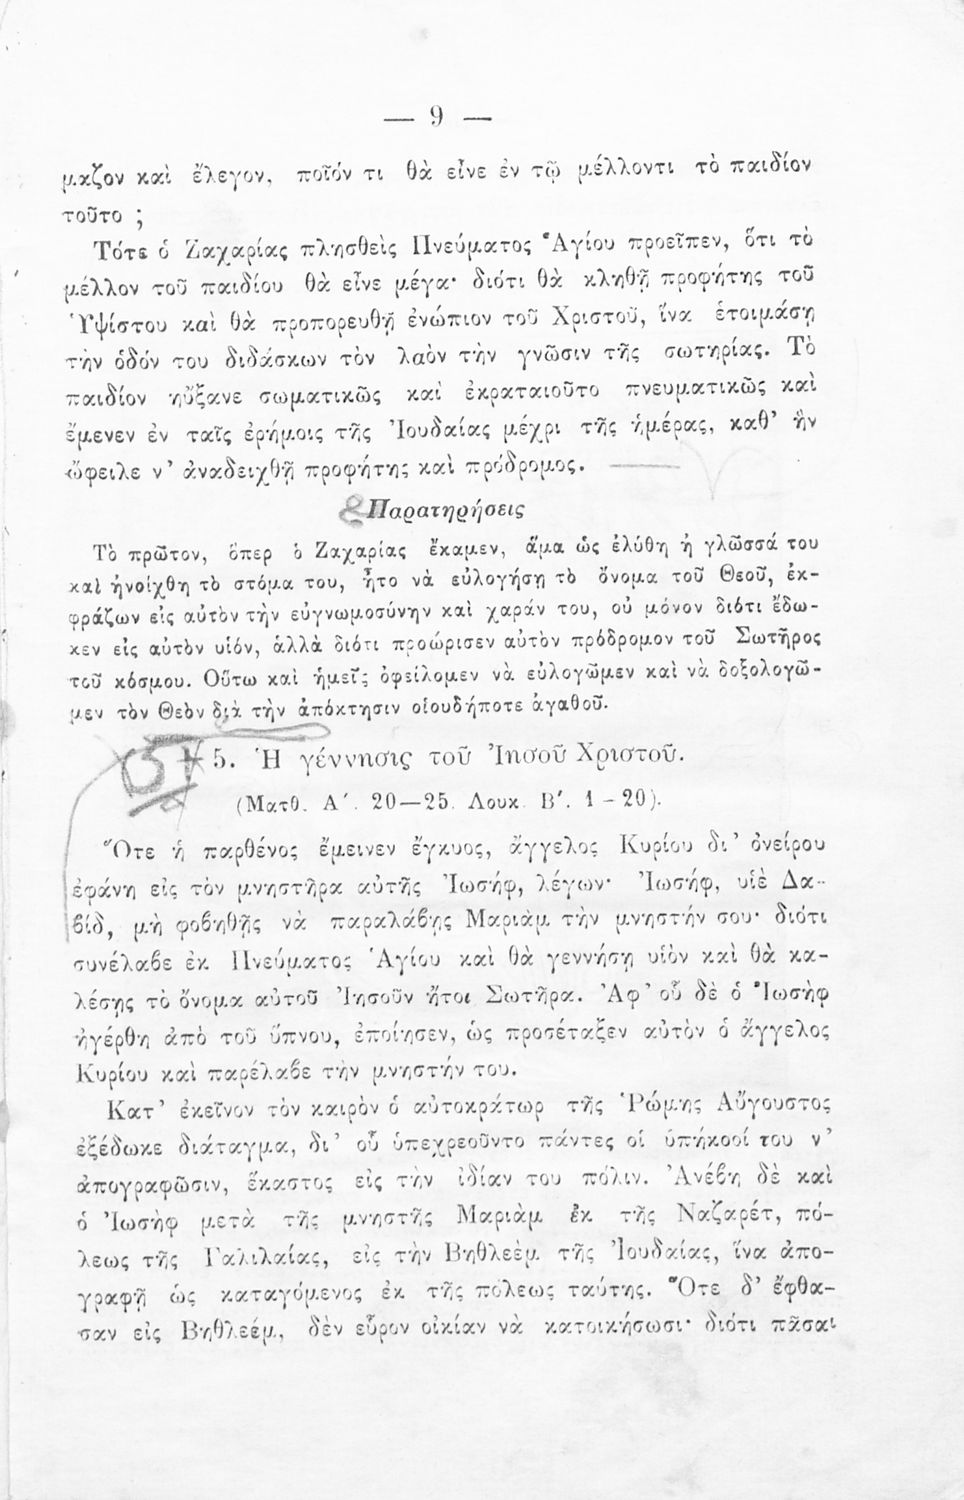 — 9 —
μαζον καὶ ἔλεγον, ποῖόν τι θὰ εἶνε ἐν τῷ μέλλοντι τὸ παιδίον
τοῦτο ;
Τότε ὁ Ζαχαρίας πλησθεὶς Πνεύματος Ἁγίου προεῖπεν, ὅτι τὸ
μέλλον τοῦ παιδίου θὰ εἶνε μέγα· διότι θὰ κληθῇ προφήτης τοῦ
Ὑψίστου καὶ θὰ προπορευθῇ ἐνώπιον τοῦ Χριστοῦ, ἵνα ἑτοιμάσῃ
τὴν ὁδόν του διδάσκων τὸν λαὸν τὴν γνῶσιν τῆς σωτηρίας. Τὸ
παιδίον ηὔξανε σωματικῶς καὶ ἐκραταιοῦτο πνευματικῶς καὶ
ἔμενεν ἐν ταῖς ἐρήμοις τῆς Ἰουδαίας μέχρι τῆς ἡμέρας, καθ' ἣν
ὤφειλε ν' ἀναδειχθῇ προφήτης καὶ πρόδρομος.
Παρατηρήσεις
Τὸ πρῶτον, ὅπερ ὁ Ζαχαρίας ἔκαμεν, ἅμα ὡς ἐλύθη ἡ γλῶσσά του
καὶ ἠνοίχθη τὸ στόμα του, ἦτο νὰ εὐλογήσῃ τὸ ὄνομα τοῦ Θεοῦ, ἐκ-
φράζων εἰς αὐτὸν τὴν εὐγνωμοσύνην καὶ χαράν του, οὐ μόνον διότι ἔδω-
κεν εἰς αὐτὸν υἱόν, ἀλλὰ διότι προώρισεν αὐτὸν πρόδρομον τοῦ Σωτῆρος
τοῦ κόσμου. Οὕτω καὶ ἡμεῖς ὀφείλομεν νὰ εὐλογῶμεν καὶ νὰ δοξολογῶ-
μεν τὸν Θεὸν διὰ τὴν ἀπόκτησιν οἱουδήποτε ἀγαθοῦ.
5 5. Ἡ γέννησις τοῦ Ἰησοῦ Χριστοῦ.
(Ματθ. Α΄. 20—25. Λουκ. Β΄. 1 - 20).
Ὅτε ἡ παρθένος ἔμεινεν ἔγκυος, ἄγγελος Κυρίου δι' ὀνείρου
ἐφάνη εἰς τὸν μνηστῆρα αὐτῆς Ἰωσήφ, λέγων· Ἰωσήφ, υἱὲ Δα-
βίδ, μὴ φοβηθῇς νὰ παραλάβῃς Μαριὰμ τὴν μνηστήν σου· διότι
συνέλαβε ἐκ Πνεύματος Ἁγίου καὶ θὰ γεννήσῃ υἱὸν καὶ θὰ κα-
λέσῃς τὸ ὄνομα αὐτοῦ Ἰησοῦν ἤτοι Σωτῆρα. Ἀφ' οὗ δὲ ὁ Ἰωσὴφ
ἠγέρθη ἀπὸ τοῦ ὕπνου, ἐποίησεν, ὡς προσέταξεν αὐτὸν ὁ ἄγγελος
Κυρίου καὶ παρέλαβε τὴν μνηστήν του.
Κατ' ἐκεῖνον τὸν καιρὸν ὁ αὐτοκράτωρ τῆς Ῥώμης Αὔγουστος
ἐξέδωκε διάταγμα, δι' οὗ ὑπεχρεοῦντο πάντες οἱ ὑπήκοοί του ν'
ἀπογραφῶσιν, ἕκαστος εἰς τὴν ἰδίαν του πόλιν. Ἀνέβη δὲ καὶ
ὁ Ἰωσὴφ μετὰ τῆς μνηστῆς Μαριὰμ ἐκ τῆς Ναζαρέτ, πό-
λεως τῆς Γαλιλαίας, εἰς τὴν Βηθλεὲμ τῆς Ἰουδαίας, ἵνα ἀπο-
γραφῇ ὡς καταγόμενος ἐκ τῆς πόλεως ταύτης. Ὅτε δ' ἔφθα-
σαν εἰς Βηθλεέμ, δὲν εὗρον οἰκίαν νὰ κατοικήσωσι· διότι πᾶσαι